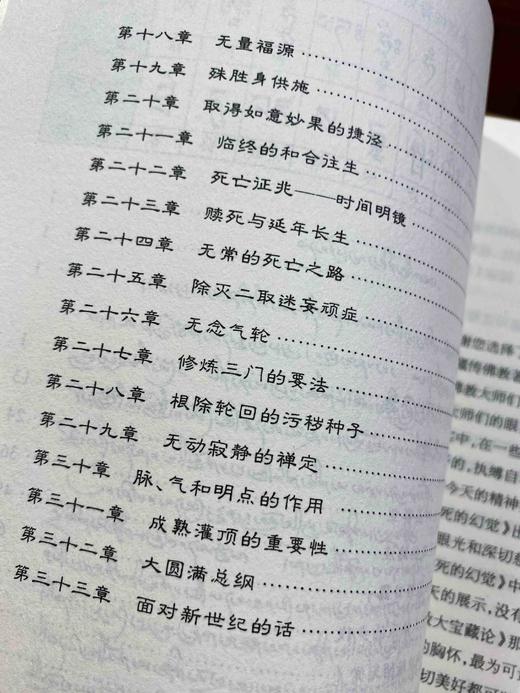 第十八章 无量福源
第十九章 殊胜身供施
第二十章 取得如意妙果的捷泾
第二十一章 临终的和合往生
第二十二章 死亡证兆——时间明镜
第二十三章 赎死与延年长生
第二十四章 无常的死亡之路
第二十五章 除灭二取迷妄顽症
第二十六章 无念气轮
第二十七章 修炼三门的要法
第二十八章 根除轮回的污秽种子
第二十九章 无动寂静的禅定
第三十章 脉、气和明点的作用
第三十一章 成熟灌顶的重要性
第三十二章 大圆满总纲
第三十三章 面对新世纪的话
谢您选择了
藏传佛教
佛教大师们
大师们的眼
中,在一些
的,执缚自
今天的精神
死的幻觉》出
眼光和深切
死的幻觉》中
天的展示,没有
大宝藏论》那
的胸怀,最为可
切美好都可